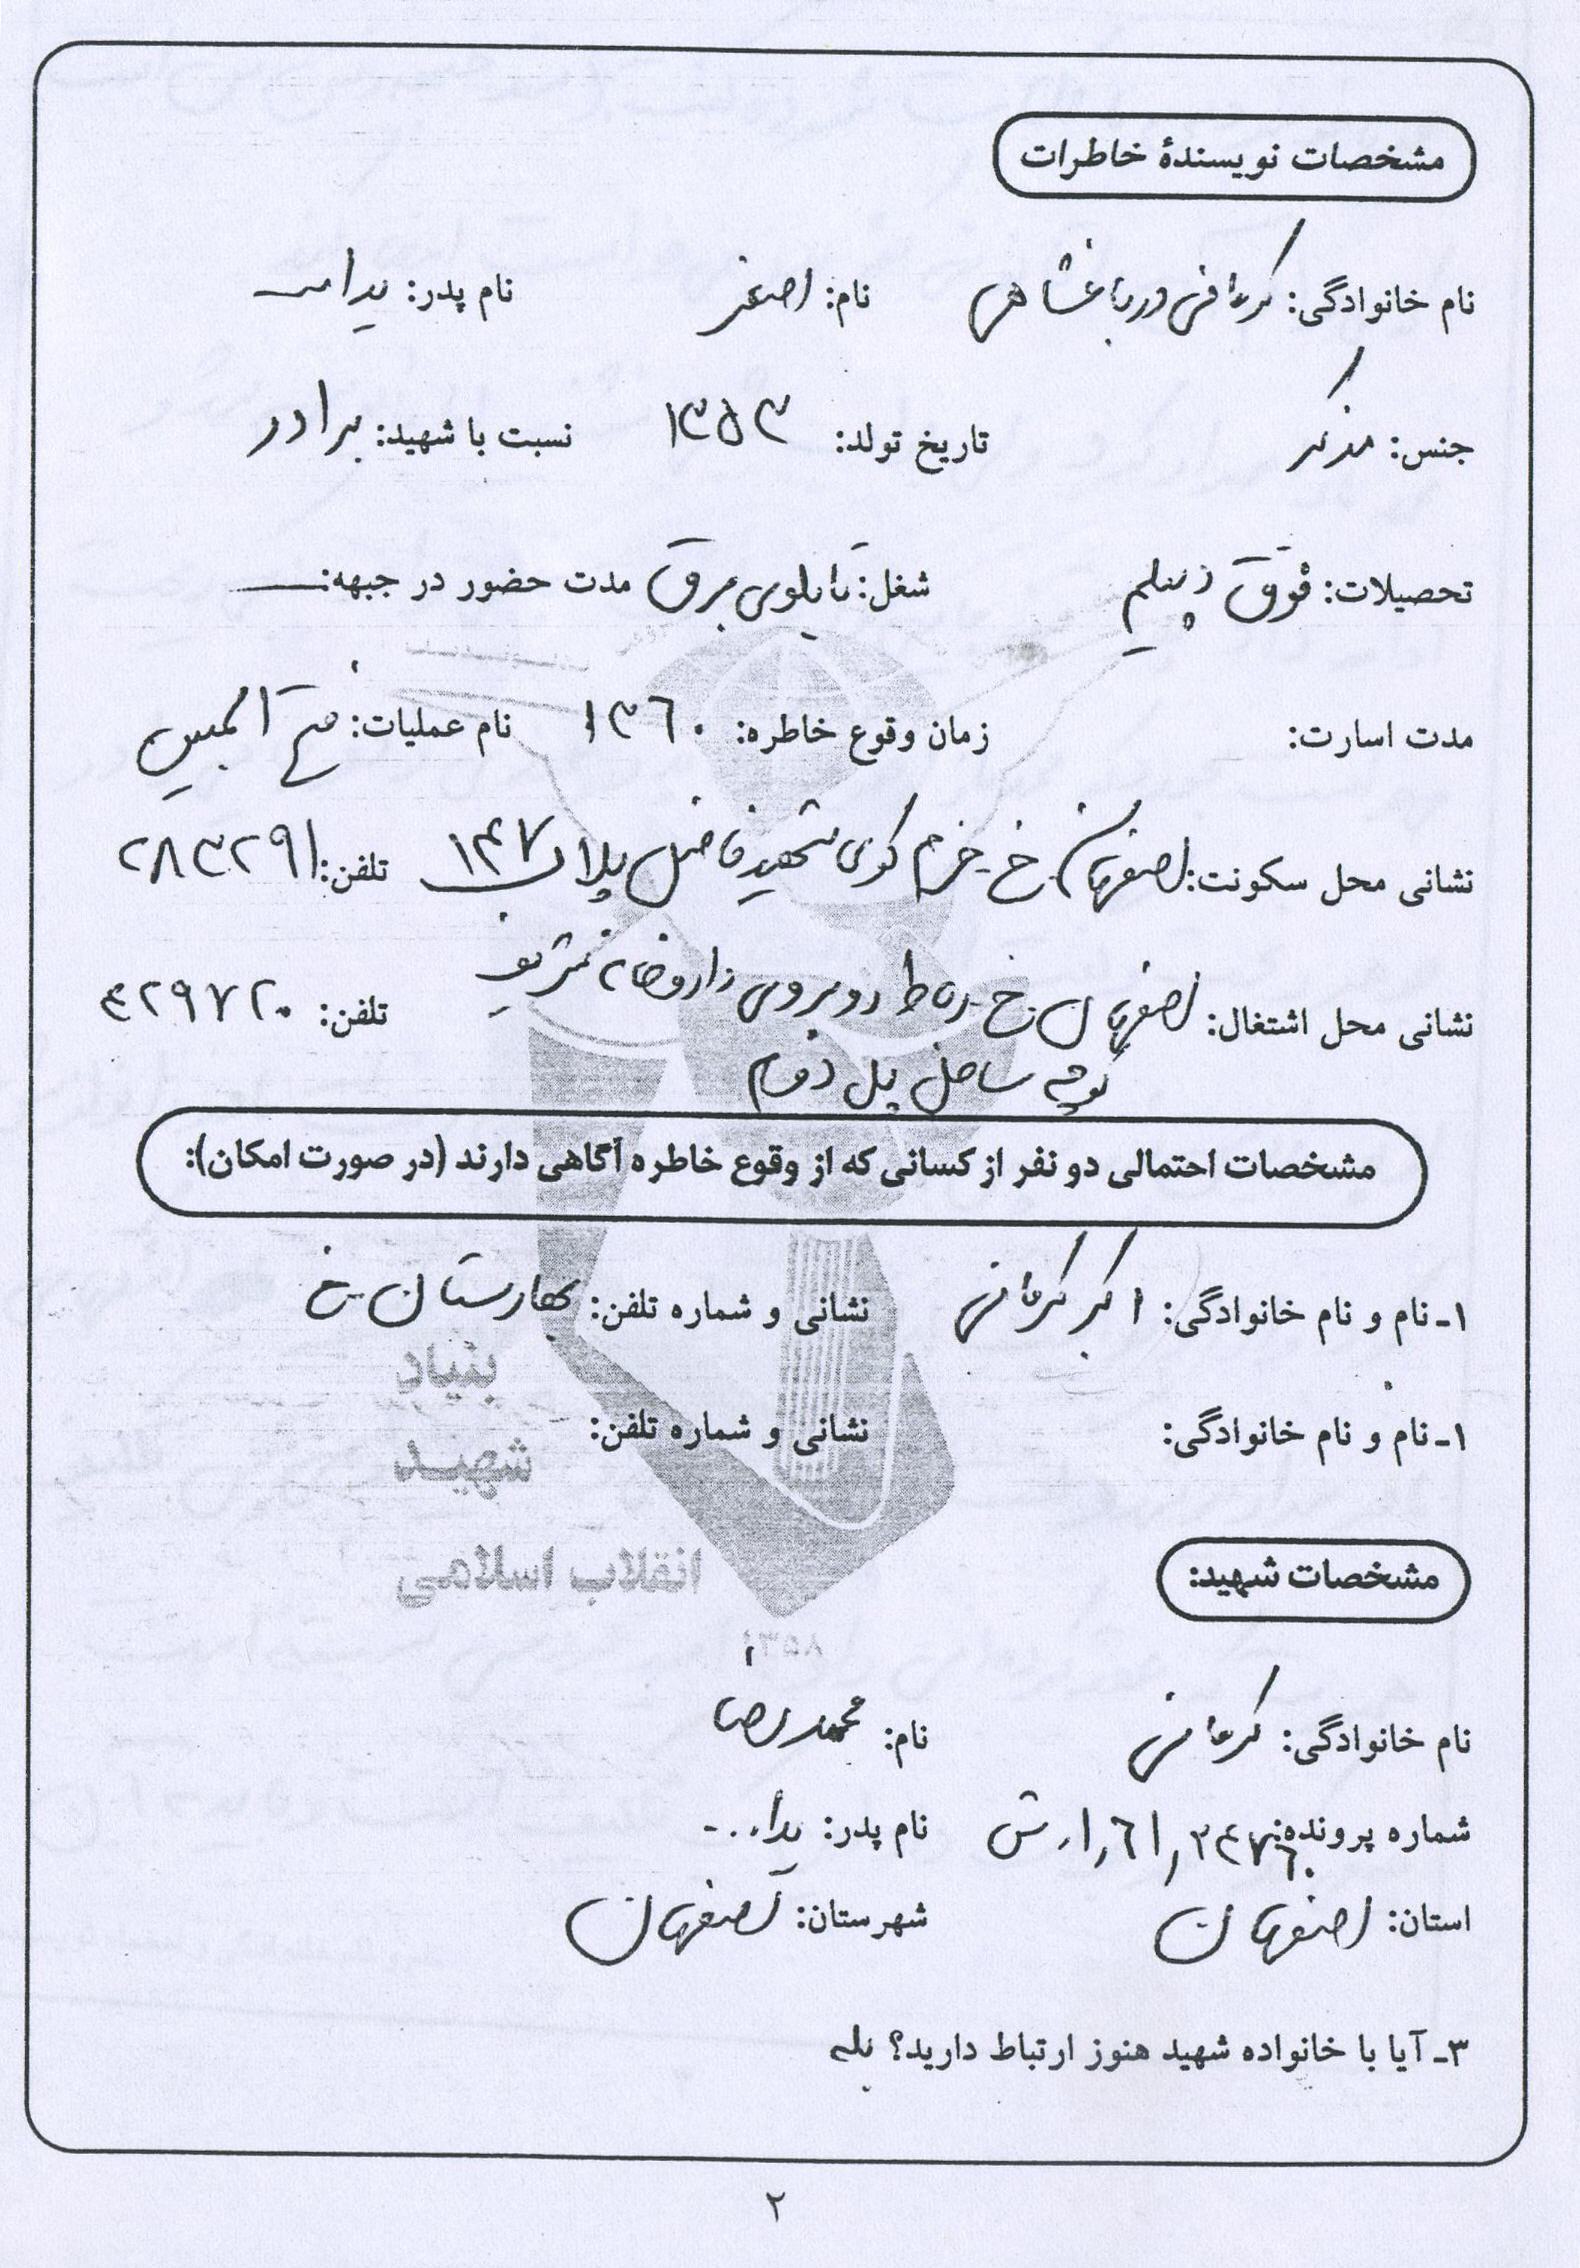 مشخصات نویسندهٔ خاطرات
نام خانوادگی: کرمانی درباغشاهی نام: اصغر نام پدر: یداله
جنس: مذکر تاریخ تولد: ۱۳۵۳ نسبت با شهید: برادر
تحصیلات: فوق دیپلم شغل: تابلوی برق مدت حضور در جبهه:
مدت اسارت: زمان وقوع خاطره: ۱۳۶۰ نام عملیات: فتح المبین
نشانی محل سکونت: اصفهان خ خرم کوی شهید فاضل پلاک ۱۴۷ تلفن: ۲۸۳۲۹۱
نشانی محل اشتغال: اصفهان خ رباط روبروی داروخانه شریف تلفن: ۴۲۹۷۲۰
کوچه ساحل پل دوم
مشخصات احتمالی دو نفر از کسانی که از وقوع خاطره آگاهی دارند (در صورت امکان):
۱ـ نام و نام خانوادگی: اکبر کرمانی نشانی و شماره تلفن: بهارستان خ
۱ـ نام و نام خانوادگی: نشانی و شماره تلفن:
بنیاد
شهید
انقلاب اسلامی
۱۳۵۸
مشخصات شهید:
نام خانوادگی: کرمانی نام: محمدرضا
شماره پرونده: نام پدر: یدا...
استان: اصفهان شهرستان: اصفهان
۳ـ آیا با خانواده شهید هنوز ارتباط دارید؟ بله
۲